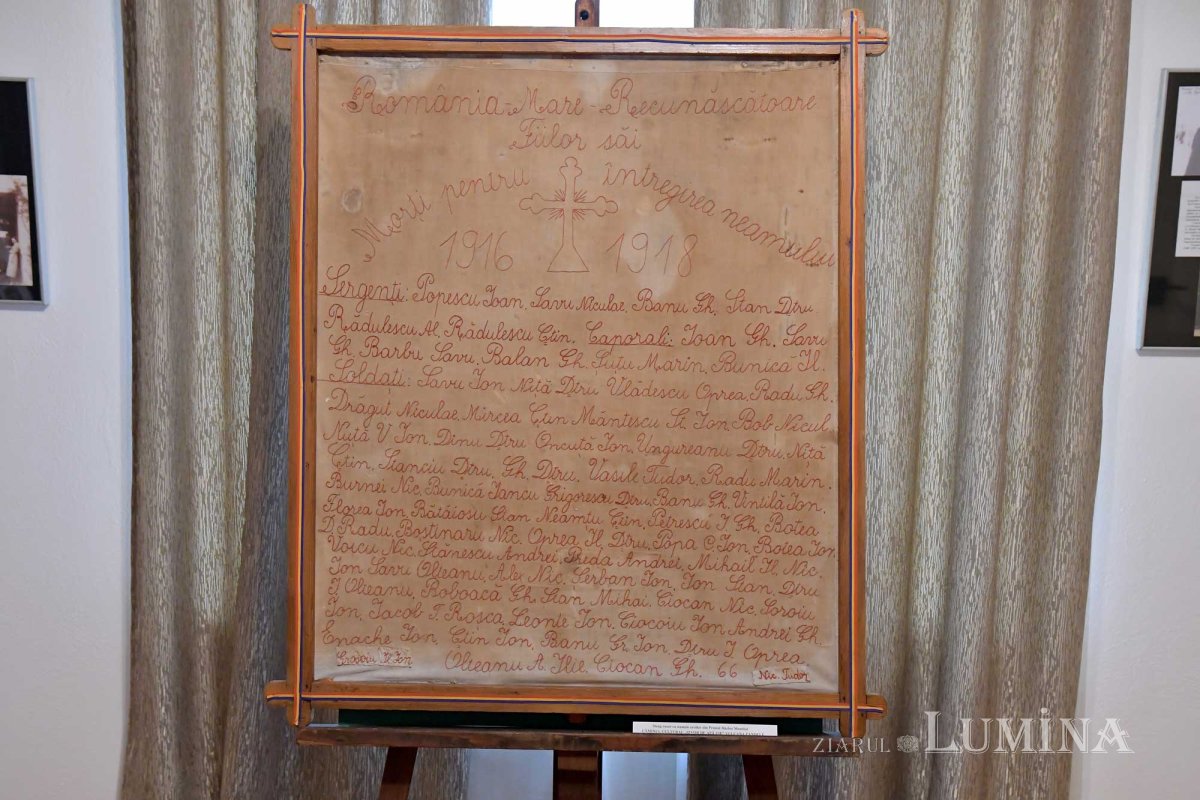 România-Mare-Recunăscătoare
Fiilor săi
Morți pentru întregirea neamului
1916 1918
Sergenți: Popescu Ioan, Savu Niculae, Banu Gh, Stan Dtru
Rădulescu Al, Rădulescu Ctin, Caporali: Ioan Gh. Savu
Gh, Barbu Savu, Balan Gh. Suțu Marin, Bunică Il.
Soldați: Savu Ion Niță Dtru Vlădescu Oprea, Radu Gh.
Drăgut Niculae, Mircea Ctin Măntescu St. Ion, Bob Nicul,
Nuță V Ion, Dinu Dtru Oncută Ion, Ungureanu Dtru, Niță
Ctin, Stanciu Dtru, Gh, Dtru, Vasile Tudor, Radu Marin,
Burnei Nic, Bunică Iancu Grigorescu Dtru, Banu Gh, Untilă Ion,
Florea Ion, Bătăiosu Stan Neamtu Ctin, Petrescu I Gh, Botea
D, Radu, Bostinaru Nic, Oprea Il, Dtru, Popa C, Ion, Botea Ion,
Voicu Nic, Stănescu Andrei, Preda Andrei, Mihail Il Nic,
Ion Savu Olteanu, Alex Nic, Serban Ion, Ion Stan, Dtru
I Olteanu, Boboacă Gh, Stan Mihai, Ciocan Nic, Soroiu
Ion, Iacob T. Rosca, Leonte Ion, Ciocoiu Ion, Andrei Gh,
Enache Ion, Ctin Ion, Banu Gr, Ion, Dtru I Oprea,
Il Ion Olteanu A. Ilie, Ciocan Gh. 66 Nic. Tudor
ZIARUL LUMINA